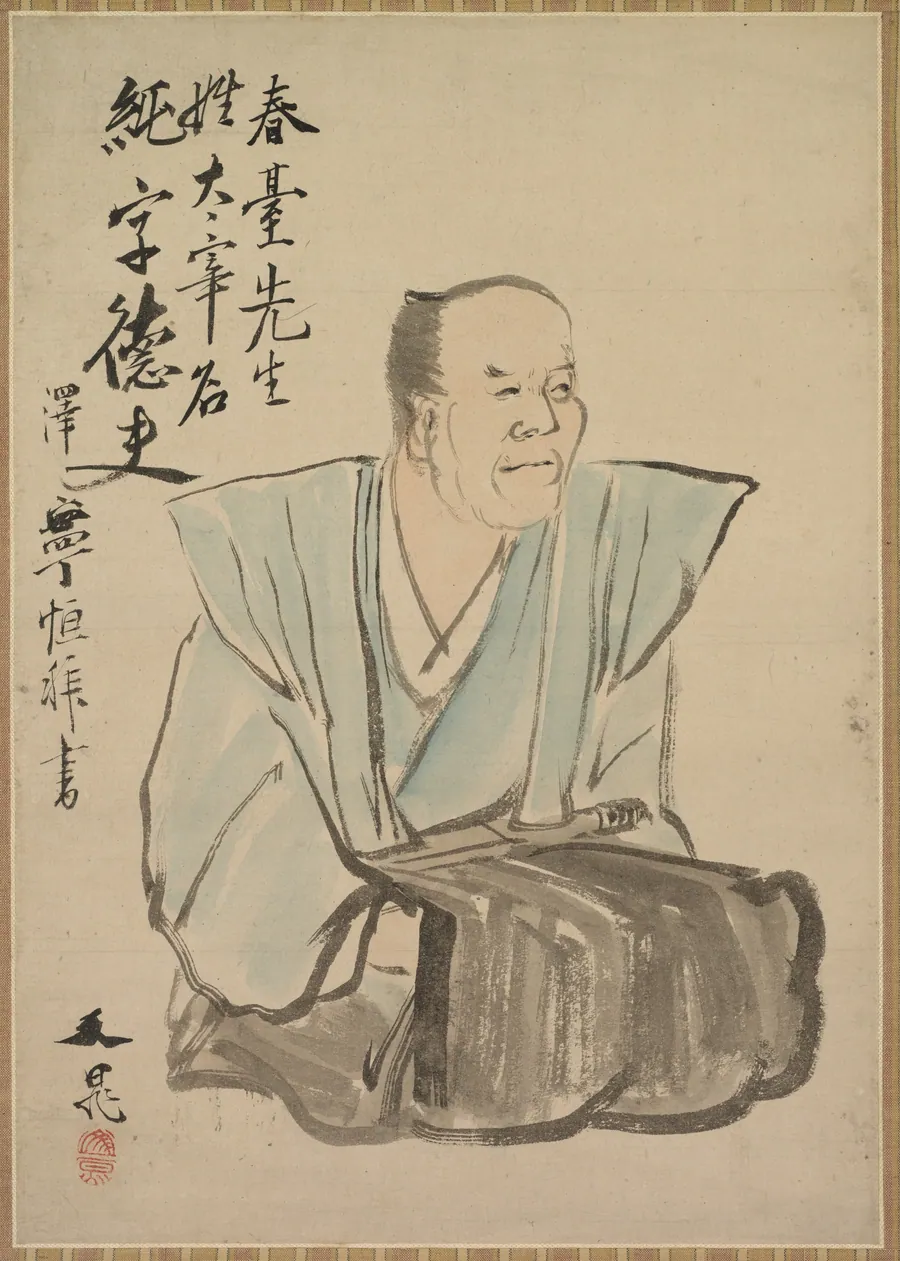 春臺先生
姓大宰名
純字德夫
澤寧恒 書
文晁